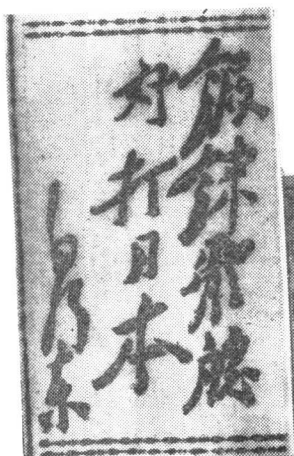 鍛鍊體魄
好打日本
毛澤东